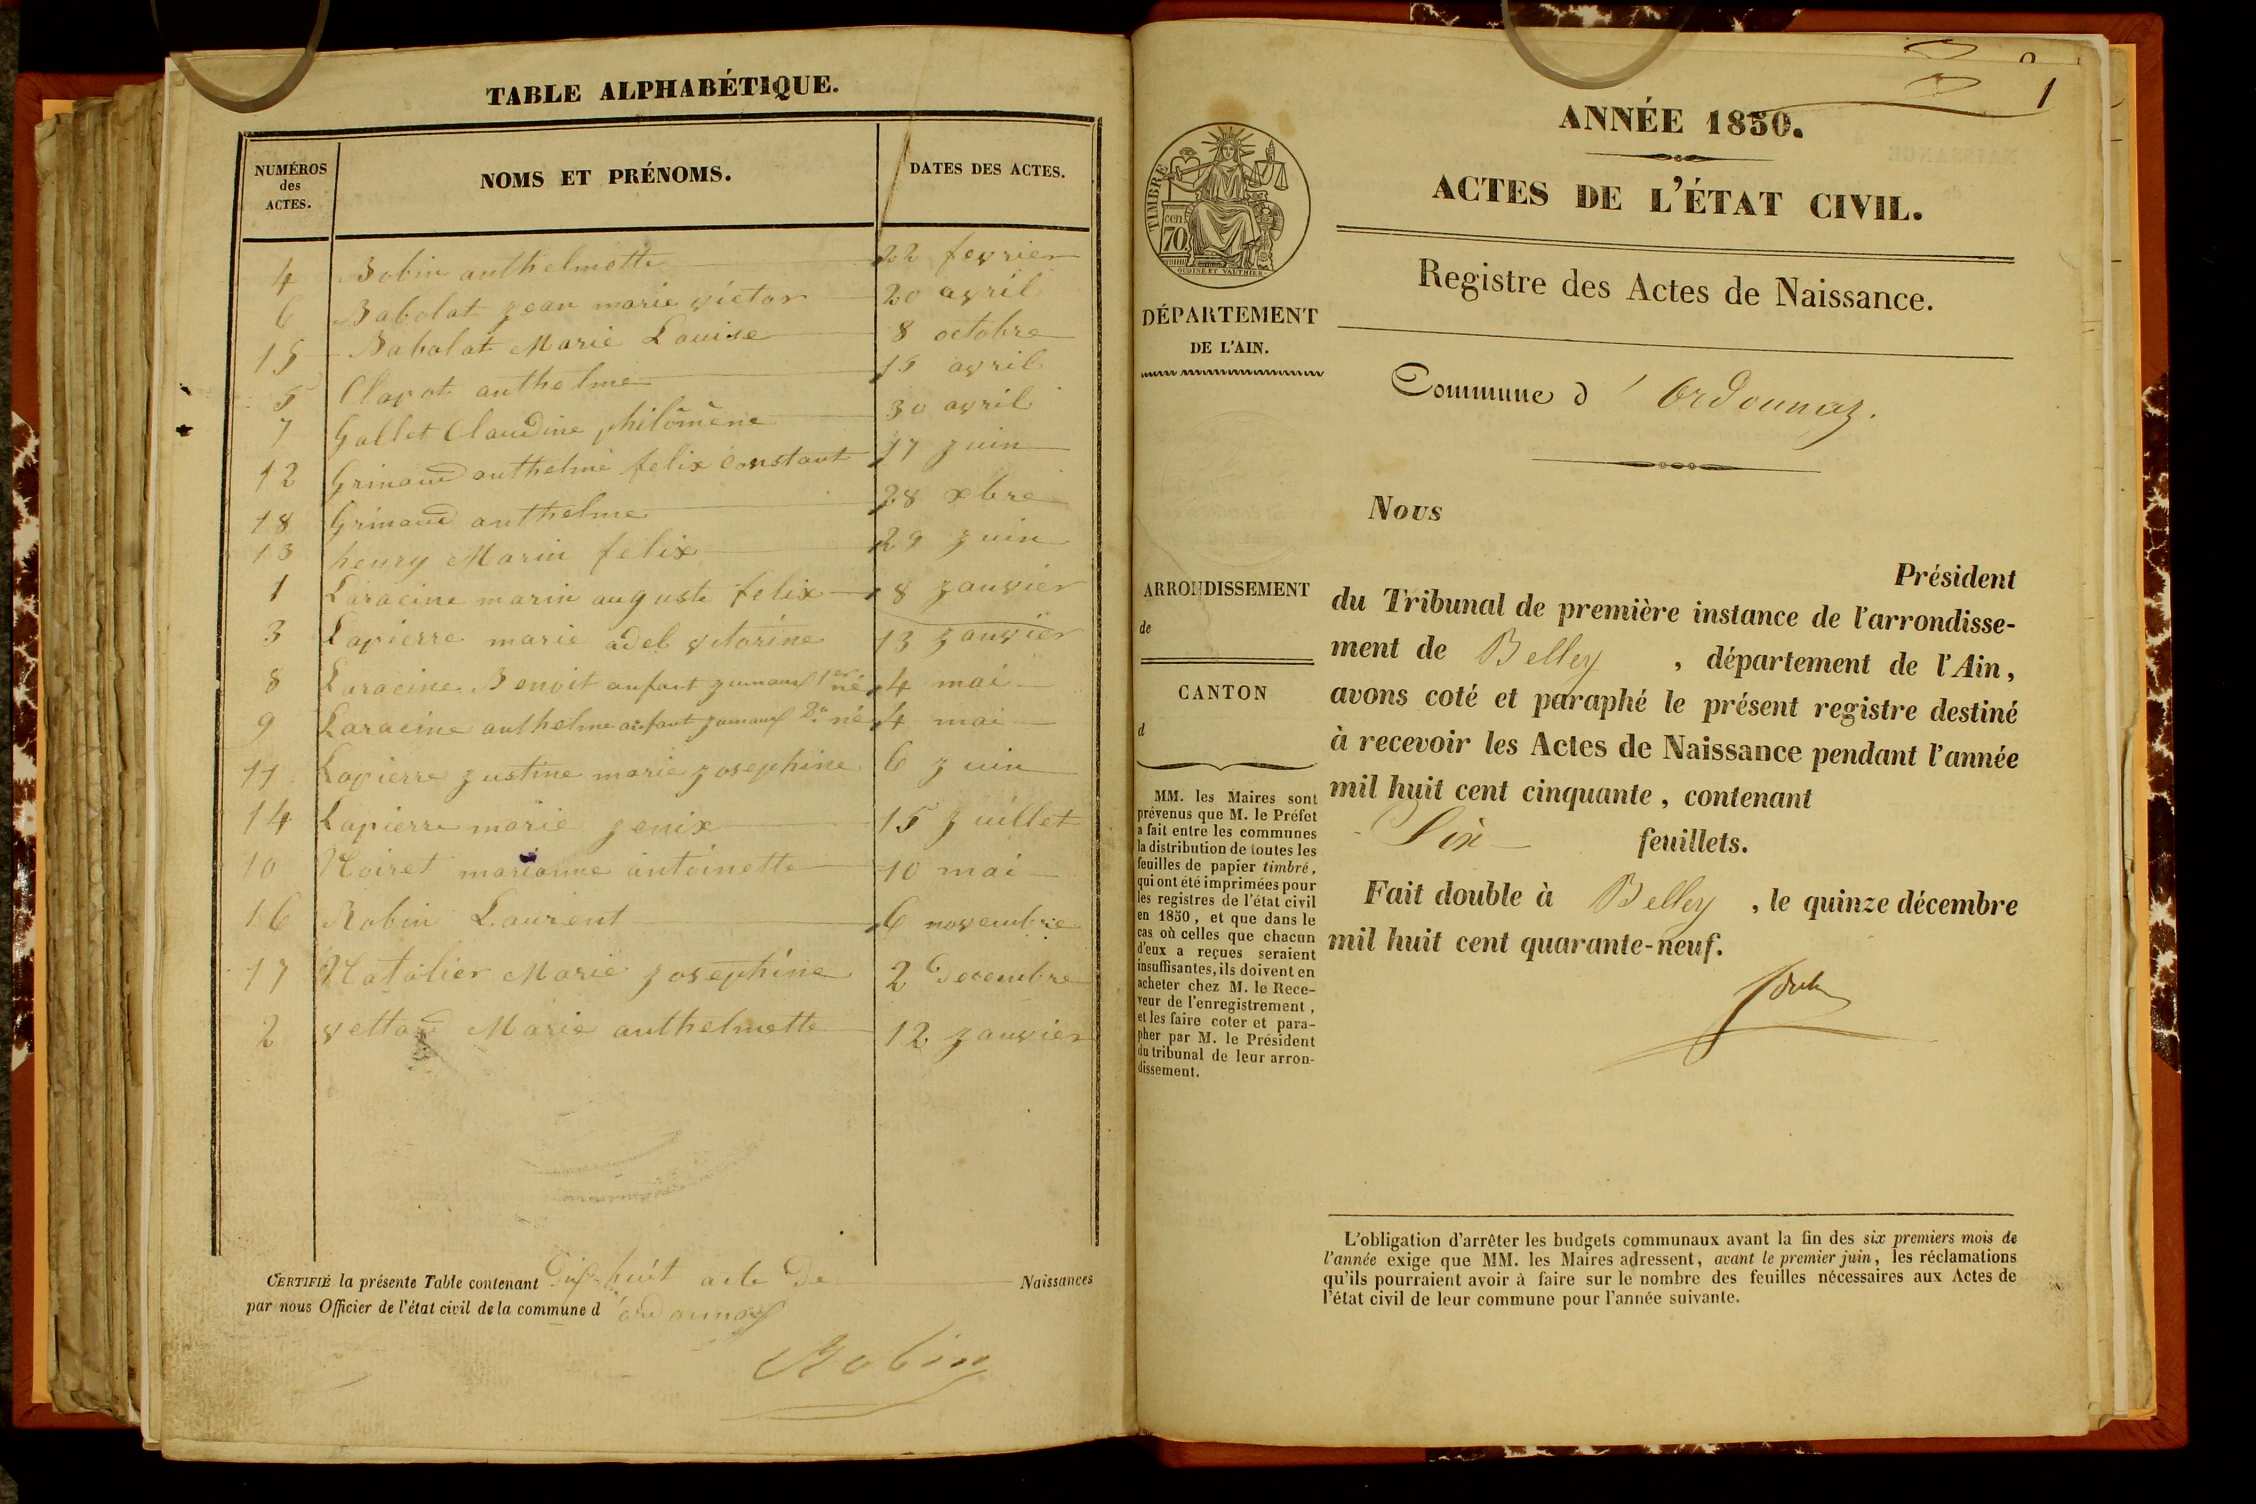 TABLE ALPHABÉTIQUE.
NUMÉROS des ACTES. NOMS ET PRÉNOMS. DATES DES ACTES.
4 Bobin anthelmette 22 fevrier
6 Babolat jean marie victor 20 avril
15 Babolat Marie Louise 8 octobre
5 Clapot anthelme 15 avril
7 Gallet Claudine philomène 30 avril
12 Grinand anthelme felix Constant 17 juin
18 Grinand anthelme 28 xbre
13 henry Marin felix 29 juin
1 Laracine marin auguste felix 8 janvier
3 Lapierre marie adel vitorine 13 janvier
8 Laracine Benoit anfant jumaux 1er né 4 mai
9 Laracine anthelme anfant jumaux 2e né 4 mai
11 Lapierre justine marie josephine 6 juin
14 Lapierre marie jenix 15 juillet
10 Noiret marianne antoinette 10 mai
16 Robin Laurent 6 novembre
17 Natalier Marie josephine 2 decembre
2 vettard Marie anthelmette 12 janvier
CERTIFIÉ la présente Table contenant Dix-huit acte de Naissances
par nous Officier de l'état civil de la commune d'ordonnaz
Robin
1
ANNÉE 1850.
ACTES DE L'ÉTAT CIVIL.
TIMBRE
cen
70
OUDINÉ ET VAUTHIER
Registre des Actes de Naissance.
DÉPARTEMENT
DE L'AIN.
Commune d'Ordonnaz.
Nous
Président
du Tribunal de première instance de l'arrondisse-
ment de Belley, département de l'Ain,
avons coté et paraphé le présent registre destiné
à recevoir les Actes de Naissance pendant l'année
mil huit cent cinquante, contenant
Six feuillets.
Fait double à Belley, le quinze décembre
mil huit cent quarante-neuf.
ARRONDISSEMENT
de
CANTON
d
MM. les Maires sont
prévenus que M. le Préfet
a fait entre les communes
la distribution de toutes les
feuilles de papier timbré,
qui ont été imprimées pour
les registres de l'état civil
en 1850, et que dans le
cas où celles que chacun
d'eux a reçues seraient
insuffisantes, ils doivent en
acheter chez M. le Rece-
veur de l'enregistrement,
et les faire coter et para-
pher par M. le Président
du tribunal de leur arron-
dissement.
L'obligation d'arrêter les budgets communaux avant la fin des six premiers mois de
l'année exige que MM. les Maires adressent, avant le premier juin, les réclamations
qu'ils pourraient avoir à faire sur le nombre des feuilles nécessaires aux Actes de
l'état civil de leur commune pour l'année suivante.